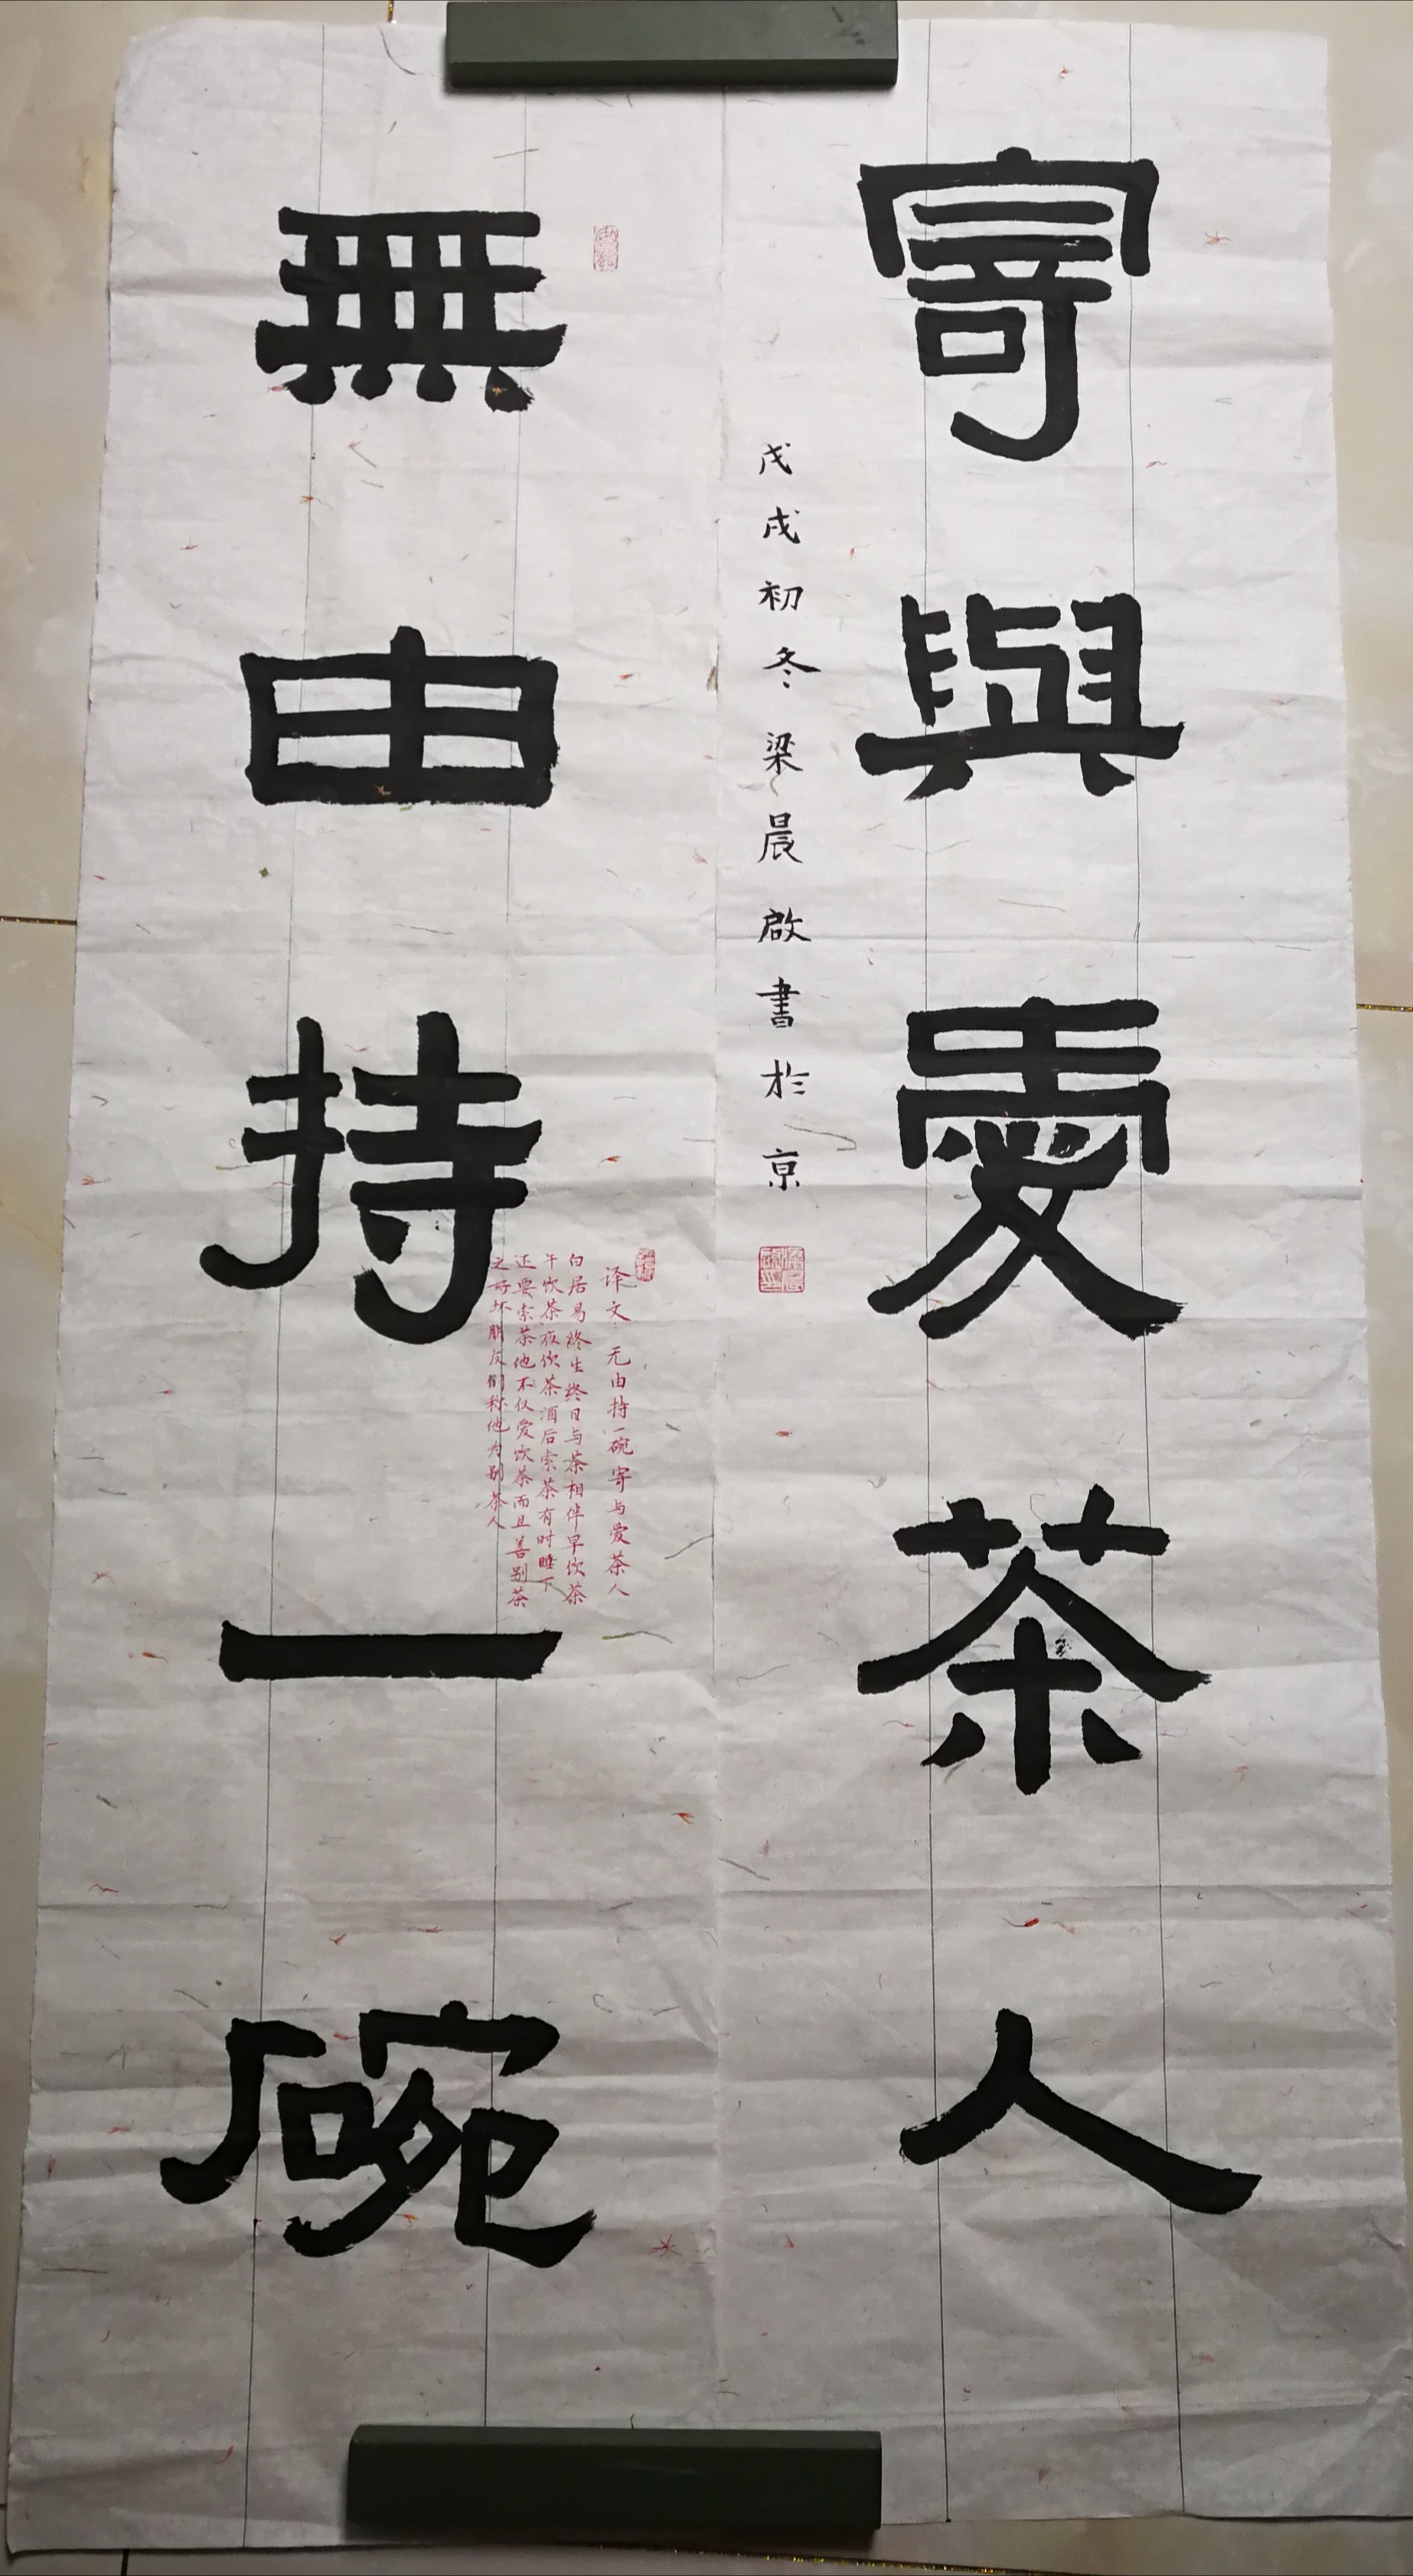 無由持一碗
寄與愛茶人
戊戌初冬梁晨啟書於京
译文:无由持一碗寄与爱茶人
白居易终生终日与茶相伴早饮茶
午饮茶夜饮茶酒后索茶有时睡下
还要索茶他不仅爱饮茶而且善别茶
之好坏朋友们称他为别茶人